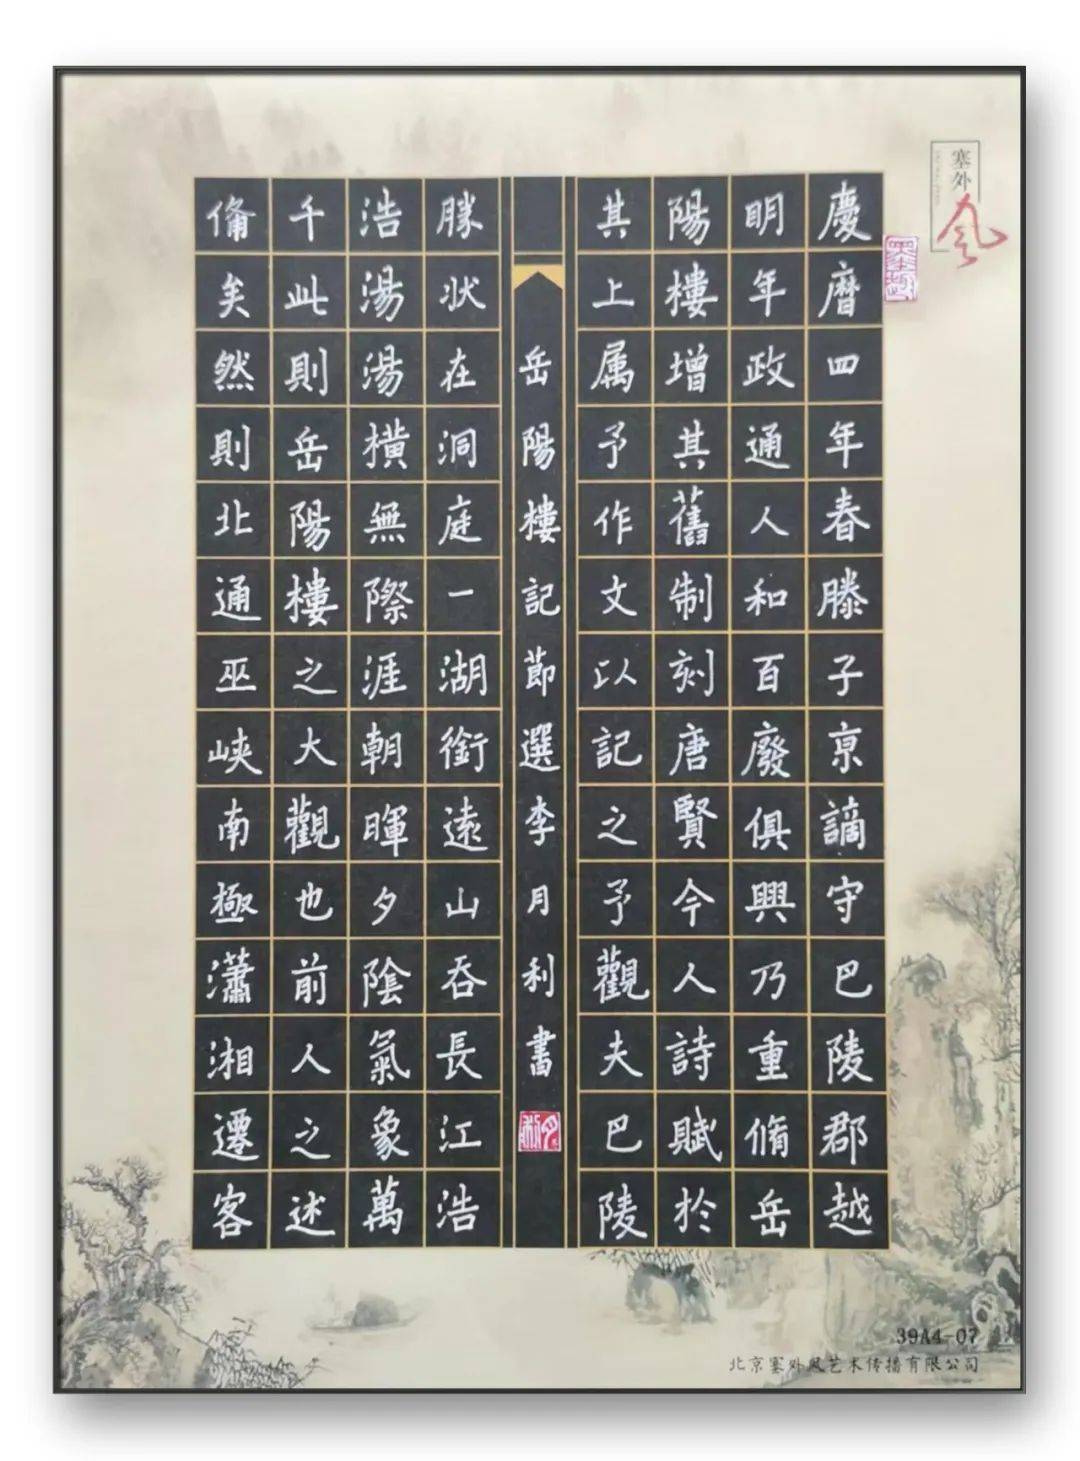 塞外
风
慶曆四年春滕子亰謫守巴陵郡越
明年政通人和百廢俱興乃重脩岳
陽樓增其舊制刻唐賢今人詩賦於
其上属予作文以記之予觀夫巴陵
岳陽樓記節選李月利書
勝狀在洞庭一湖銜遠山吞長江浩
浩湯湯橫無際涯朝暉夕陰氣象萬
千此則岳陽樓之大觀也前人之述
備矣然則北通巫峽南極瀟湘遷客
39A4-07
北京塞外风艺术传播有限公司